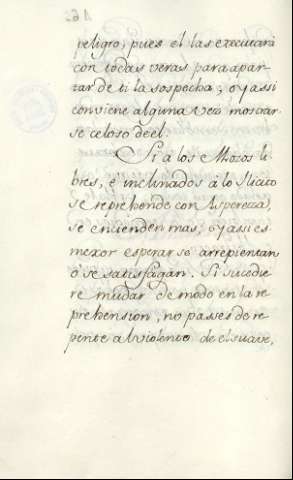 peligro, pues el las executará
con todas veras para apar-
tar de ti la sospecha; oy assi
conviene alguna vez mostrar-
se celoso de el.
Si a los Mozos li-
bres, e inclinados a lo Ilicito
se reprehende con Aspereza,
se encienden mas, oy assi es
mexor esperar se arrepientan
o se satisfagan. Si sucedie-
re mudar de modo en la re-
prehension, no passes de re-
pente al violento de el suave,